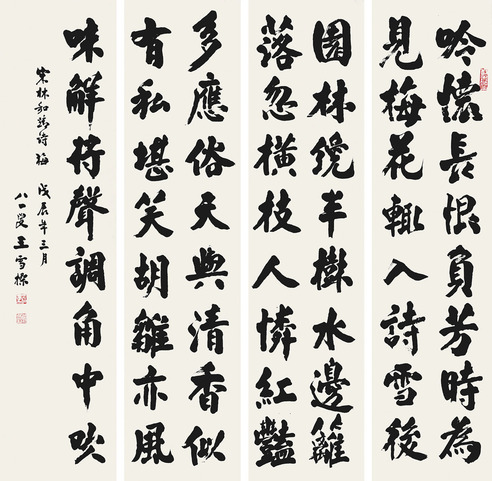 吟懷長恨負芳時為
見梅花輒入詩雪後
園林纔半樹水邊籬
落忽橫枝人憐紅豔
多應俗天與清香似
有私堪笑胡雛亦風
味解將聲調角中吹
宋林和靖詩梅 戊辰年三月
八一叟王雪樵